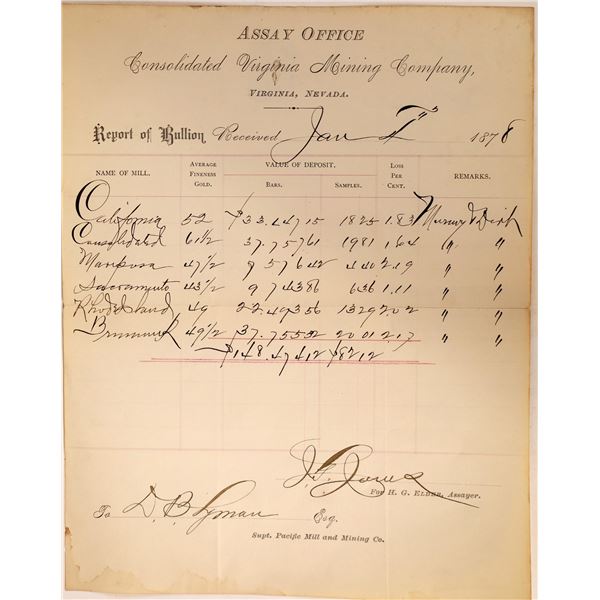 ASSAY OFFICE
Consolidated Virginia Mining Company,
VIRGINIA, NEVADA.
Report of Bullion Received Jan 7" 1878
NAME OF MILL. AVERAGE FINENESS GOLD. VALUE OF DEPOSIT. BARS. SAMPLES. LOSS PER CENT. REMARKS.
California 52 $33.447 15 18 25 1.83 Mercury & Dirt
Consolidated 61 1/2 37.757 61 19 81 1.64 " "
Mariposa 47 1/2 9 576 42 4 40 2.19 " "
Sacramento 43 1/2 9 743 86 6 36 1.11 " "
Rhode Island 49 22.403 56 13 29 2.02 " "
Brunswick 49 1/2 37.755 52 20 01 2.17 " "
$148.474 12 $82 12
For H. G. ELDER, Assayer.
To D. B. Lyman Esq.
Supt. Pacific Mill and Mining Co.